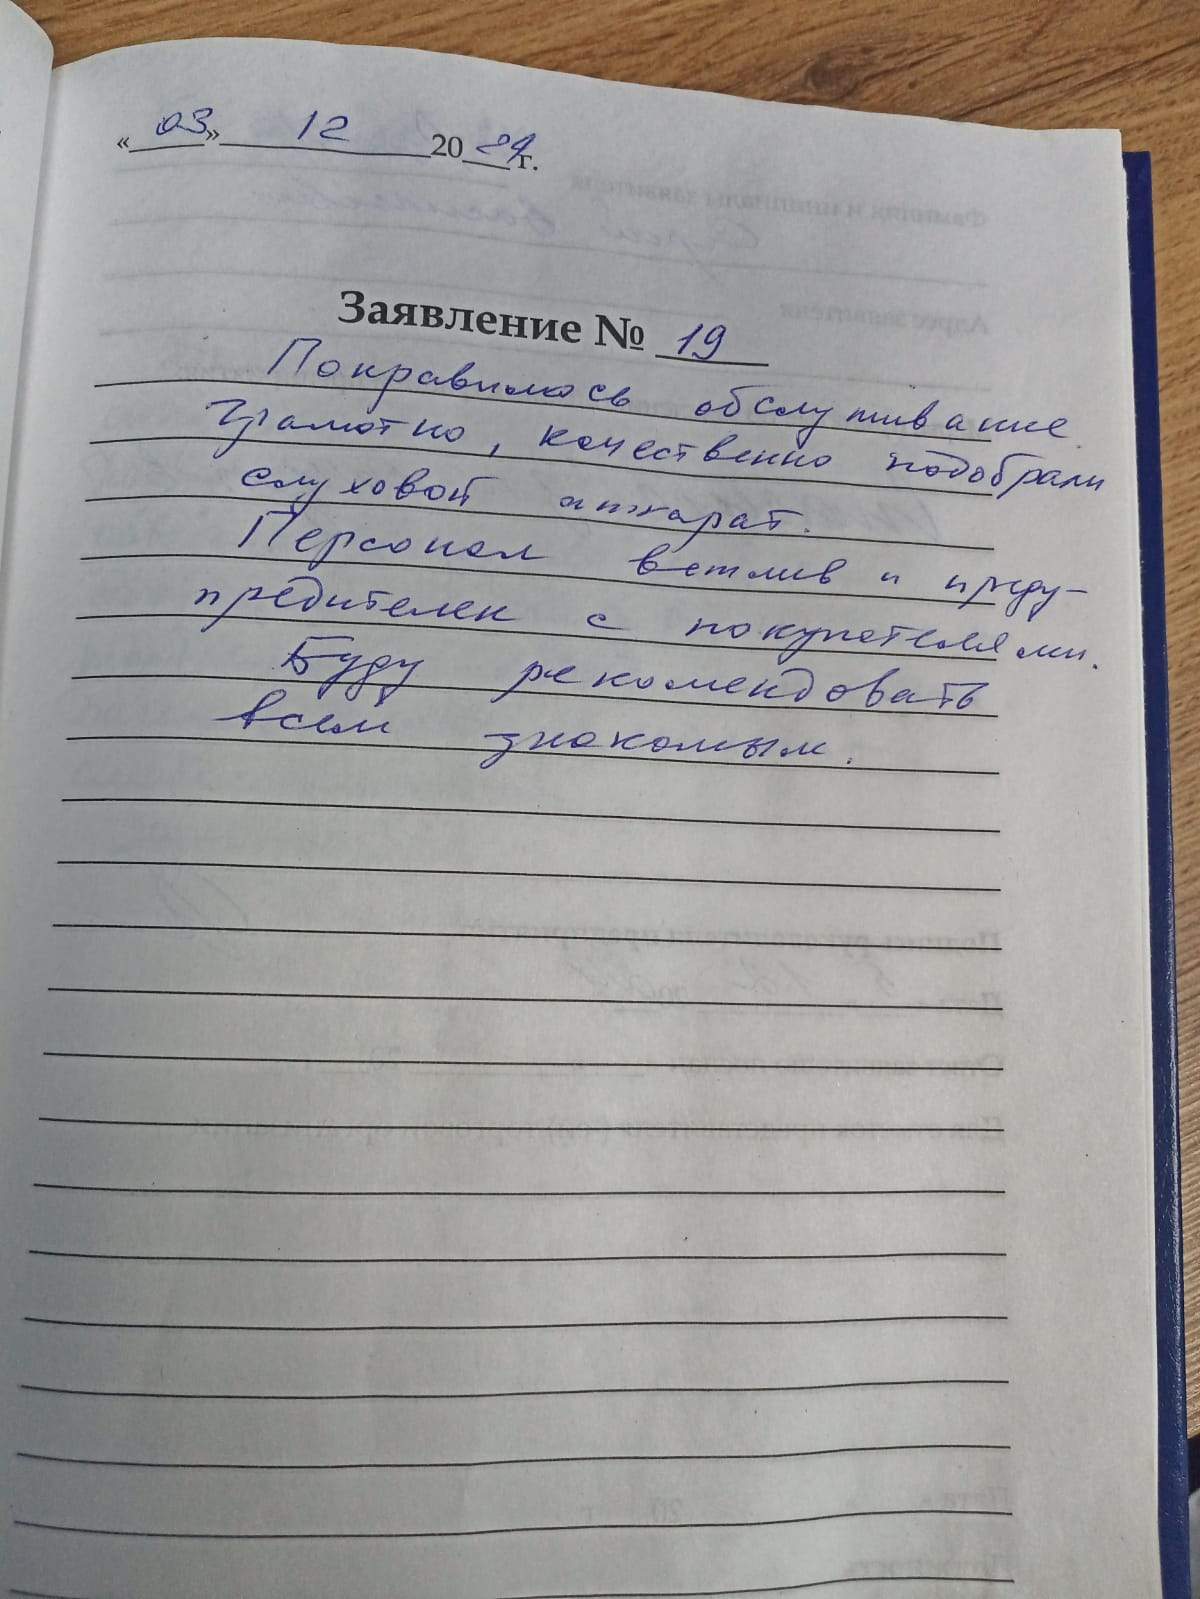 «03» 12 2024 г.
Заявление № 19
Понравилось обслуживание.
Грамотно, качественно подобрали
слуховой аппарат.
Персонал вежлив и преду-
предителен с покупателями.
Буду рекомендовать
всем знакомым.